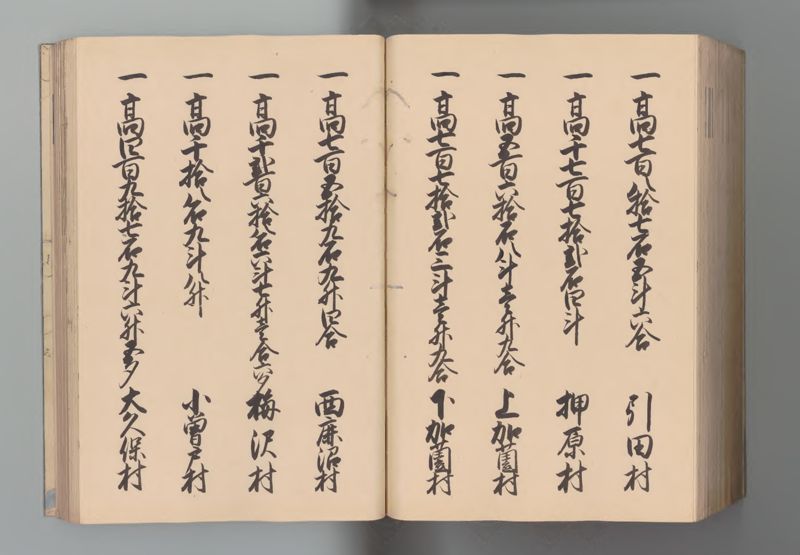 一 高七百八拾七石五斗六合 引田村
一 高千七百七拾弐石四斗 押原村
一 高五百六拾石八斗壱升九合 上加薗村
一 高七百七拾弐石二斗壱升九合 下加薗村
一 高七百五拾九石九升四合 西鹿沼村
一 高千弐百六拾石六斗七升壱合六夕 梅沢村
一 高千拾八石九斗八升 小曽戸村
一 高四百九拾七石九斗六升五夕 大久保村